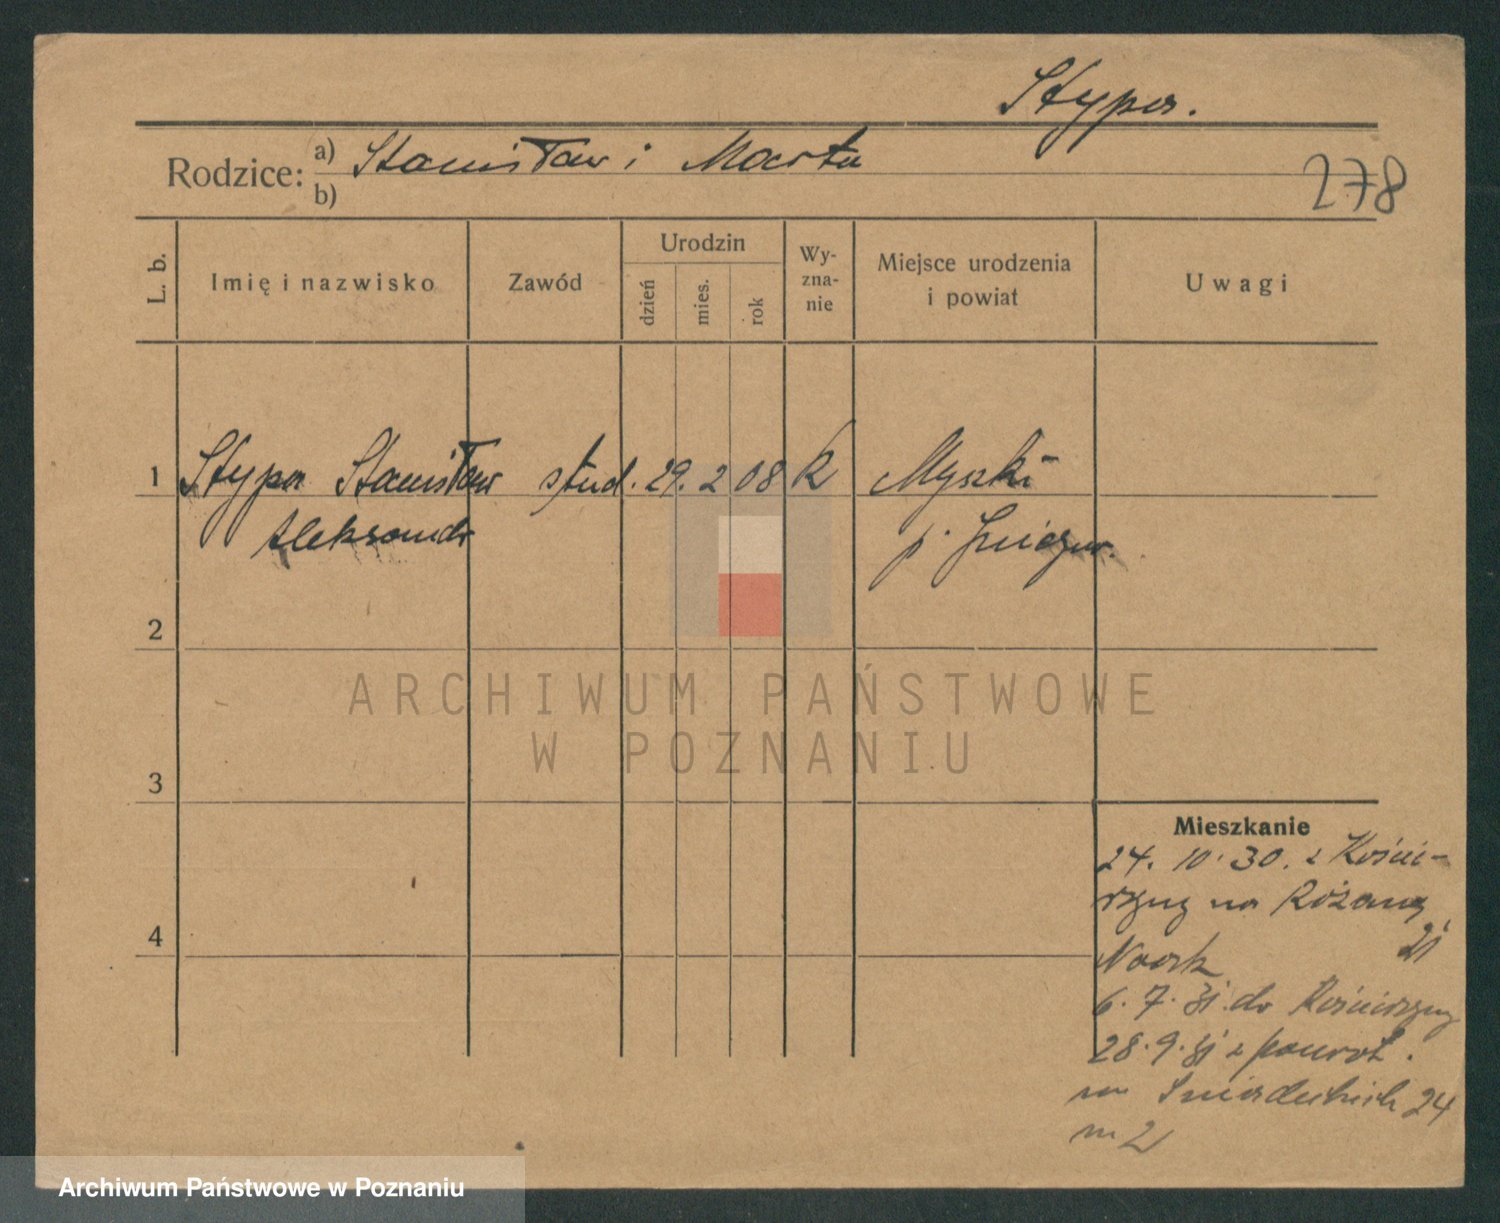 Stypa.
Rodzice: a) Stanisław i Marta
b)
278
L. b. Imię i nazwisko Zawód Urodzin dzień mies. rok Wy-zna-nie Miejsce urodzenia i powiat Uwagi
1 Stypa Stanisław stud. 29. 2 08 k Myszki
Aleksander p. Gniezno.
2
ARCHIWUM PAŃSTWOWE
W POZNANIU
3
Mieszkanie
24. 10. 30. z Kości-
erzyny na Różaną
21
4
6. 7. 31 do Kościerzyny
28. 9. 31 z powrot.
na Śniadeckich 24
m 2
Archiwum Państwowe w Poznaniu